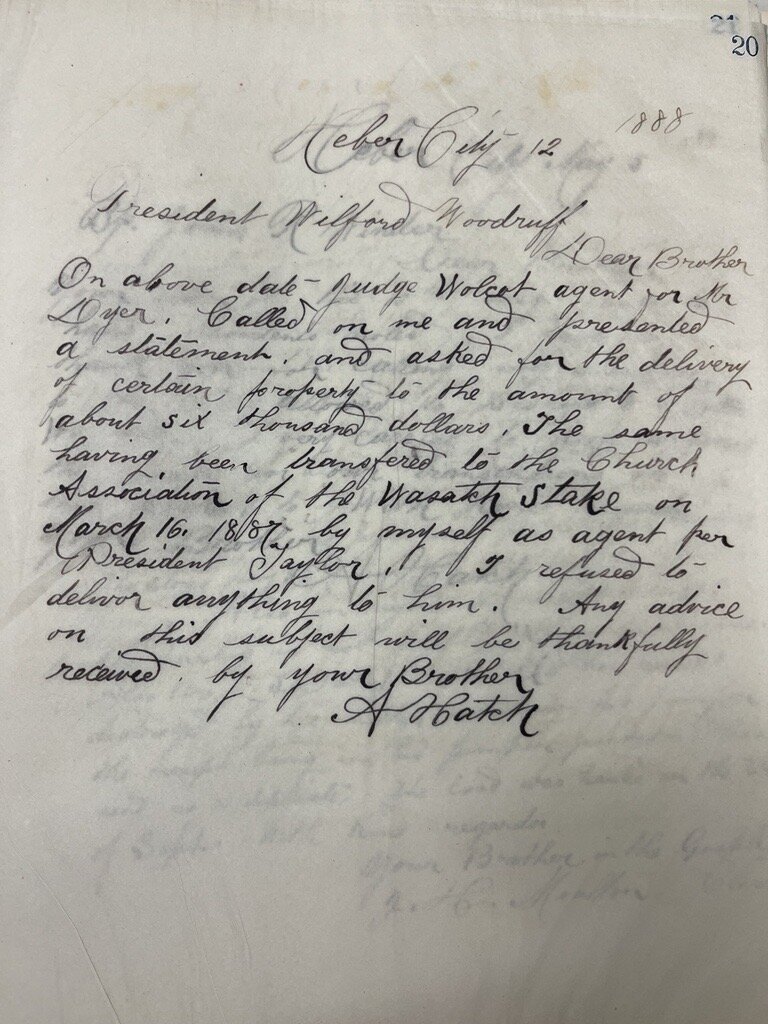 20
Heber City 12 1888
President Wilford Woodruff
Dear Brother
On above date Judge Wolcot agent for Mr
Dyer. Called on me and presented
a statement. and asked for the delivery
of certain property to the amount of
about six thousand dollars. The same
having been transfered to the Church
Association of the Wasatch Stake on
March 16. 1887 by myself as agent per
President Taylor. I refused to
delivor anything to him. Any advice
on this subject will be thankfully
received. by your Brother
A Hatch